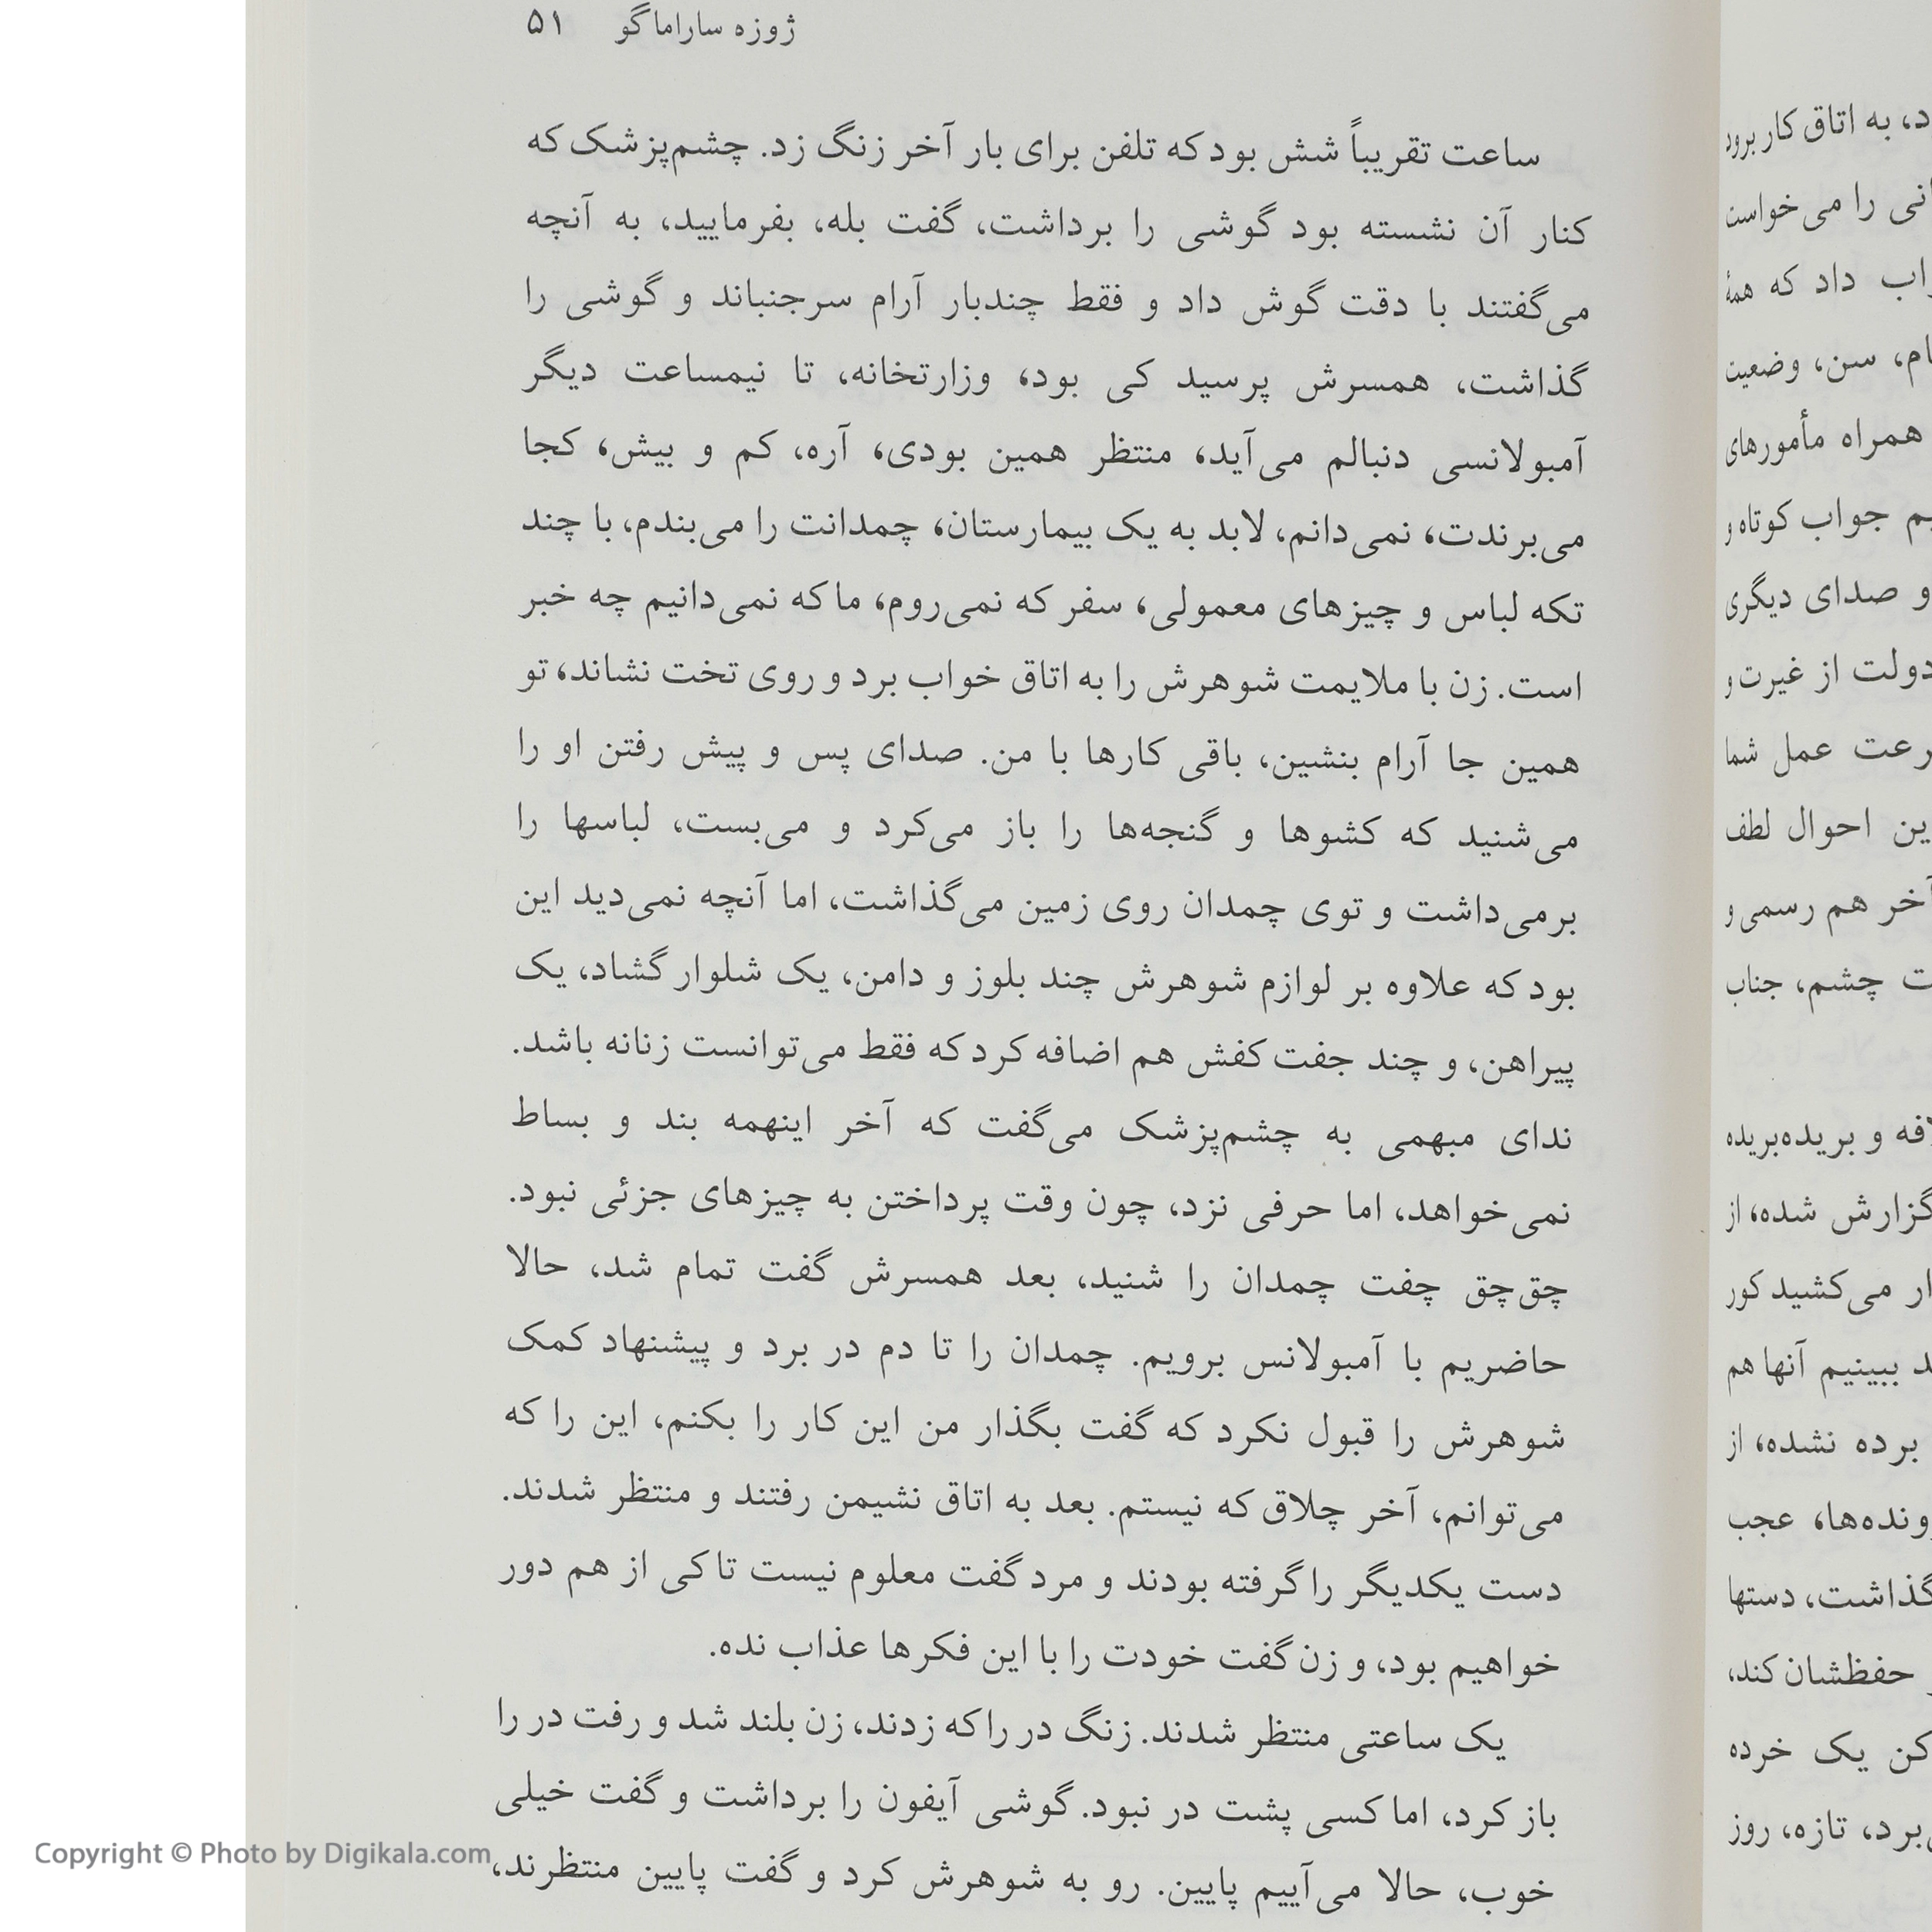 ژوزه ساراماگو ۵۱
ساعت تقریباً شش بود که تلفن برای بار آخر زنگ زد. چشم‌پزشک که
کنار آن نشسته بود گوشی را برداشت، گفت بله، بفرمایید، به آنچه
می‌گفتند با دقت گوش داد و فقط چندبار آرام سرجنباند و گوشی را
گذاشت، همسرش پرسید کی بود، وزارتخانه، تا نیمساعت دیگر
آمبولانسی دنبالم می‌آید، منتظر همین بودی، آره، کم و بیش، کجا
می‌برندت، نمی‌دانم، لابد به یک بیمارستان، چمدانت را می‌بندم، با چند
تکه لباس و چیزهای معمولی، سفر که نمی‌روم، ما که نمی‌دانیم چه خبر
است. زن با ملایمت شوهرش را به اتاق خواب برد و روی تخت نشاند، تو
همین جا آرام بنشین، باقی کارها با من. صدای پس و پیش رفتن او را
می‌شنید که کشوها و گنجه‌ها را باز می‌کرد و می‌بست، لباسها را
برمی‌داشت و توی چمدان روی زمین می‌گذاشت، اما آنچه نمی‌دید این
بود که علاوه بر لوازم شوهرش چند بلوز و دامن، یک شلوار گشاد، یک
پیراهن، و چند جفت کفش هم اضافه کرد که فقط می‌توانست زنانه باشد.
ندای مبهمی به چشم‌پزشک می‌گفت که آخر اینهمه بند و بساط
نمی‌خواهد، اما حرفی نزد، چون وقت پرداختن به چیزهای جزئی نبود.
چق‌چق چفت چمدان را شنید، بعد همسرش گفت تمام شد، حالا
حاضریم با آمبولانس برویم. چمدان را تا دم در برد و پیشنهاد کمک
شوهرش را قبول نکرد که گفت بگذار من این کار را بکنم، این را که
می‌توانم، آخر چلاق که نیستم. بعد به اتاق نشیمن رفتند و منتظر شدند.
دست یکدیگر را گرفته بودند و مرد گفت معلوم نیست تا کی از هم دور
خواهیم بود، و زن گفت خودت را با این فکرها عذاب نده.
یک ساعتی منتظر شدند. زنگ در را که زدند، زن بلند شد و رفت در را
باز کرد، اما کسی پشت در نبود. گوشی آیفون را برداشت و گفت خیلی
خوب، حالا می‌آییم پایین. رو به شوهرش کرد و گفت پایین منتظرند،
به اتاق کار برود
را می‌خواست
داد که همهٔ
سن، وضعیت
همراه مأمورهای
جواب کوتاه و
و صدای دیگری
دولت از غیرت و
عمل شما
احوال لطف
آخر هم رسمی و
چشم، جناب
و بریده‌بریده
گزارش شده، از
می‌کشید کور
ببینیم آنها هم
برده نشده، از
عجب
گذاشت، دستها
حفظشان کند،
یک خرده
تازه، روز
Copyright © Photo by Digikala.com